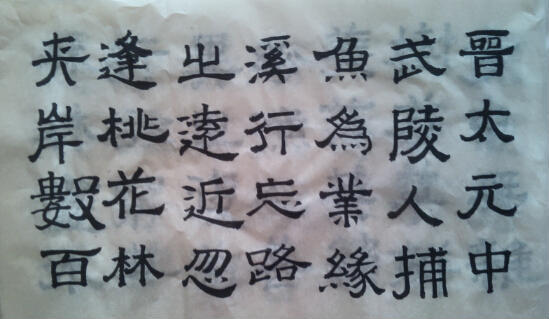 晉太元中
武陵人捕
魚為業緣
溪行忘路
之遠近忽
逢桃花林
夾岸數百